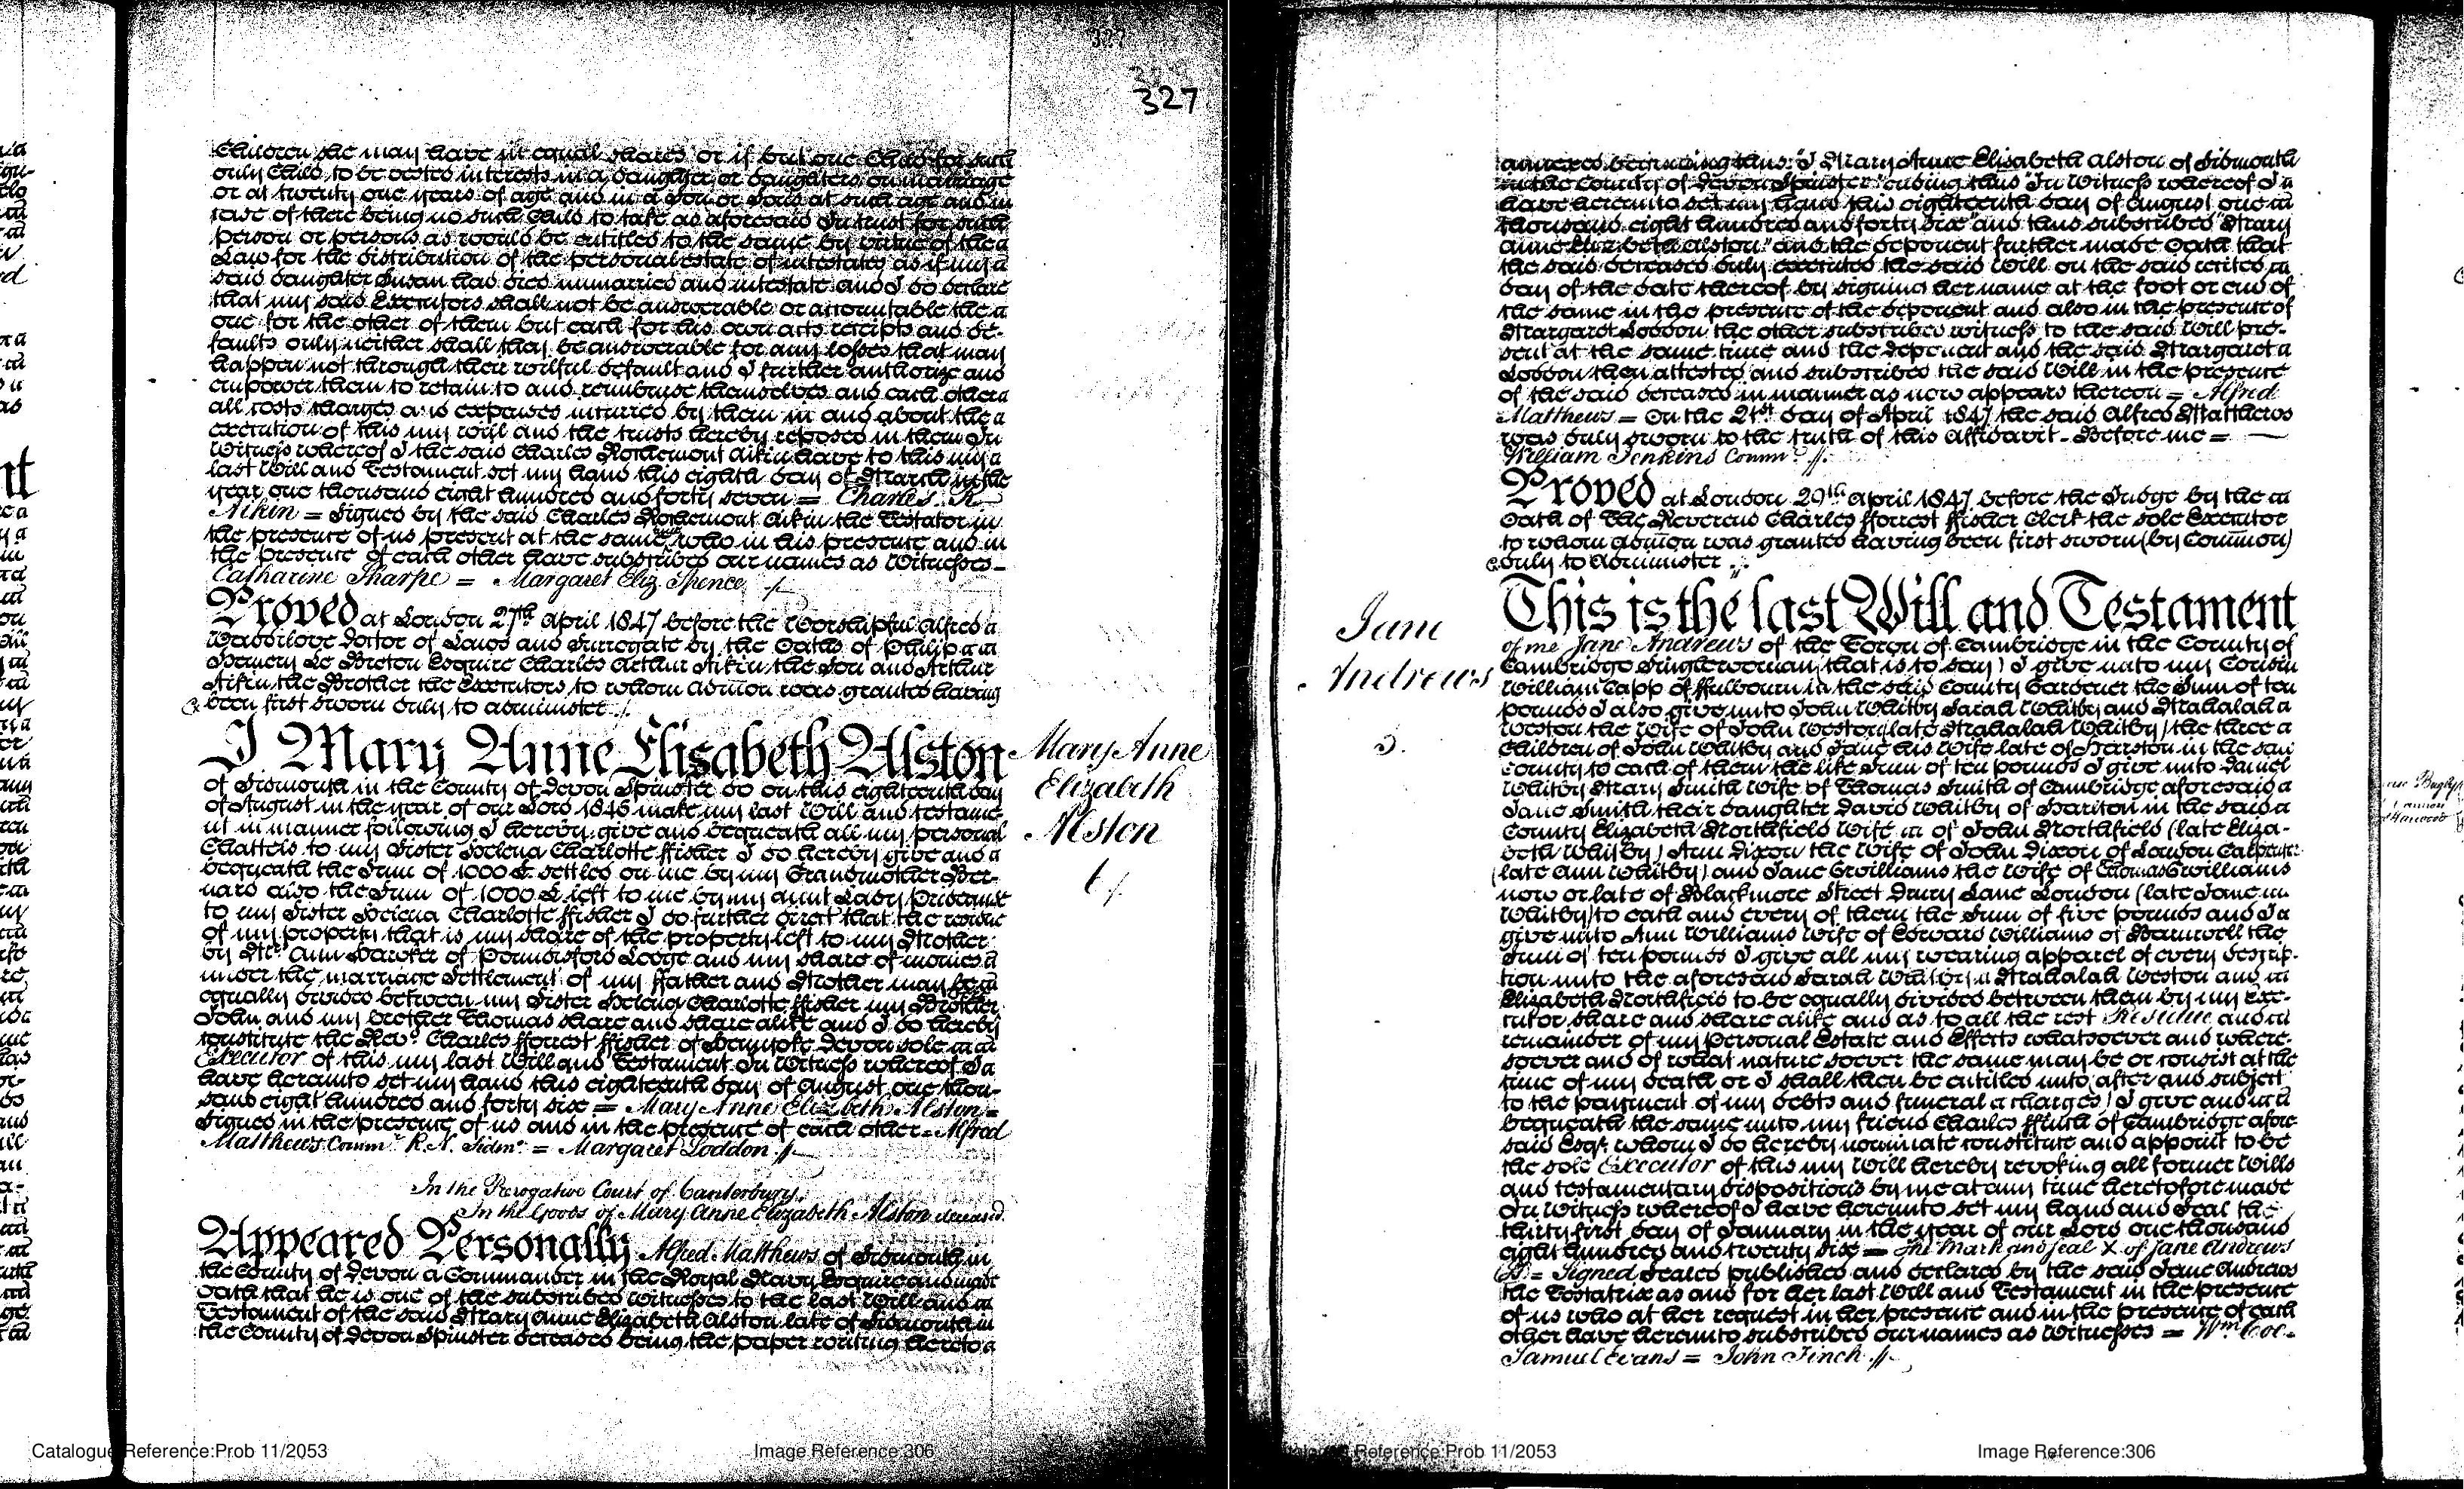 327
327
Children she may have in equal shares or if but one Child for such
only Child to be vested interests in a daughter or daughters on marriage
or at twenty one years of age and in a son or sons at such age and in
case of there being no such Child to take as aforesaid In trust for such
person or persons as would be entitled to the same by virtue of the
Law for the distribution of the personal estate of intestates as if my
said daughter Susan had died unmarried and intestate and I do declare
that my said Executors shall not be answerable or accountable the
one for the other of them but each for his own acts receipts and de-
faults only neither shall they be answerable for any losses that may
happen not through their wilful default and I further authorize and
empower them to retain to and reimburse themselves and each other
all costs charges and expenses incurred by them in and about the
execution of this my will and the trusts hereby reposed in them In
Witness whereof I the said Charles Rochemont Aikin have to this my
last Will and Testament set my hand this eighth day of March in the
year one thousand eight hundred and forty seven = Charles. R.
Aikin = Signed by the said Charles Rochemont Aikin the Testator in
the presence of us present at the same time who in his presence and in
the presence of each other have subscribed our names as Witnesses _
Catharine Sharpe = Margaret Eliz. Spence
Proved at London 27th April 1847 before the Worshipful Alfred
Waddilove Doctor of Laws and Surrogate by the Oaths of Philip
Hemery Le Breton Esquire Charles Arthur Aikin the Son and Arthur
Aikin the Brother the Executors to whom admon was granted having
been first sworn duly to administer.
I Mary Anne Elisabeth Alston
Mary Anne
Elizabeth
Alston
6/.
of Sidmouth in the County of Devon Spinster do on this eighteenth day
of August in the year of our Lord 1846 make my last Will and testame-
nt in manner following I hereby give and bequeath all my personal
Chattels to my Sister Helena Charlotte ffisher I do hereby give and
bequeath the Sum of 1000 £ settled on me by my Grandmother Ber-
nard also the Sum of 1000 £ left to me by my aunt Lady Prideaux
to my Sister Helena Charlotte ffisher I do further direct that the residue
of my property that is my share of the property left to my Mother
by Mrs. Ann Barker of Ponndsford Lodge and my share of monies
under the marriage Settlement of my ffather and Mother may be
equally divided between my Sister Helena Charlotte ffisher my Brother
John and my brother Thomas share and share alike and I do hereby
constitute the Revd. Charles fforrest ffisher of Hemyoke Devon sole
Executor of this my last Will and Testament In Witness whereof I
have hereunto set my hand this eighteenth day of August one thou-
sand eight hundred and forty six = Mary Anne Elizbeth Alston =
Signed in the presence of us and in the presence of each other = Alfred
Matthews Commr. R.N. Sidmo. = Margaret Loddon
In the Prerogative Court of Canterbury.
In the Goods of Mary Anne Elizabeth Alston deceased.
Appeared Personally Alfred Matthews of Sidmouth in
the County of Devon a Commander in the Royal Navy Esquire and made
Oath that he is one of the subscribed witnesses to the last Will and
Testament of the said Mary Anne Elizabeth Alston late of Sidmouth in
the County of Devon Spinster deceased being the paper writing hereto
annexed beginning thus "I Mary Anne Elisabeth Alston of Sidmouth
in the County of Devon Spinster" ending thus "In Witness whereof I
have hereunto set my hand this eighteenth day of August one
thousand eight hundred and forty six" and thus subscribed "Mary
Anne Elizbeth Alston" and the deponent further made Oath that
the said deceased duly executed the said Will on the said recited
day of the date thereof by signing her name at the foot or end of
the same in the presence of the deponent and also in the presence of
Margaret Loddon the other subscribed witness to the said Will pre-
sent at the same time and the deponent and the said Margaret
Loddon then attested and subscribed the said Will in the presence
of the said deceased in manner as now appears thereon = Alfred
Matthews = On the 21st day of April 1847 the said Alfred Matthews
was duly sworn to the truth of this Affidavit _ Before me =
William Jenkins Commr.
Proved at London 29th April 1847 before the Judge by the
Oath of The Reverend Charles fforrest ffisher Clerk the sole Executor
to whom admon was granted having been first sworn (by Common)
duly to administer.
This is the last Will and Testament
Jane
Andrews
5.
of me Jane Andrews of the Town of Cambridge in the County of
Cambridge Singlewoman, that is to say) I give unto my Cousin
William Capp of ffulbourn in the said County Gardener the Sum of ten
pounds I also give unto John Whitby Sarah Whitby and Mahalah
Weston the Wife of John Weston (late Mahalah Whitby) the three
Children of John Whitby and Jane his Wife late of Harston in the said
County to each of them the like Sum of ten pounds I give unto Daniel
Whitby Mary Smith Wife of Thomas Smith of Cambridge aforesaid
Jane Smith their daughter David Whitby of Harlton in the said
County Elizabeth Northfield Wife of John Northfield (late Eliza-
beth Whitby) Ann Dixon the Wife of John Dixon of London Carpenter
(late Ann Whitby) and Jane Gwilliams the Wife of Thomas Gwilliams
now or late of Blackmore Street Drury Lane London (late Jane
Whitby) to each and every of them the Sum of five pounds and I
give unto Ann Williams Wife of Edward Williams of Barnwell the
Sum of ten pounds I give all my wearing apparel of every descrip-
tion unto the aforesaid Sarah Whitby Mahalah Weston and
Elizabeth Northfield to be equally divided between them by my Exe-
cutor share and share alike and as to all the rest Residue and
remainder of my Personal Estate and Effects whatsoever and where-
soever and of what nature soever the same may be or consist at the
time of my death or I shall then be entitled unto (after and subject
to the payment of my debts and funeral charges) I give and
bequeath the same unto my friend Charles ffinch of Cambridge afore-
said Esqr. whom I do hereby nominate constitute and appoint to be
the sole Executor of this my Will hereby revoking all former Wills
and testamentary dispositions by me at any time heretofore made
In Witness whereof I have hereunto set my hand and Seal the
thirty first day of January in the year of our Lord one thousand
eight hundred and twenty six = The Mark and Seal X of Jane Andrews
= Signed Sealed published and declared by the said Jane Andrews
the Testatrix as and for her last Will and Testament in the presence
of us who at her request in her presence and in the presence of each
other have hereunto subscribed our names as Witnesses = Wm. Coe.
Samuel Evans = John Finch
Catalogue Reference:Prob 11/2053
Image Reference:306
Reference:Prob 11/2053
Image Reference:306